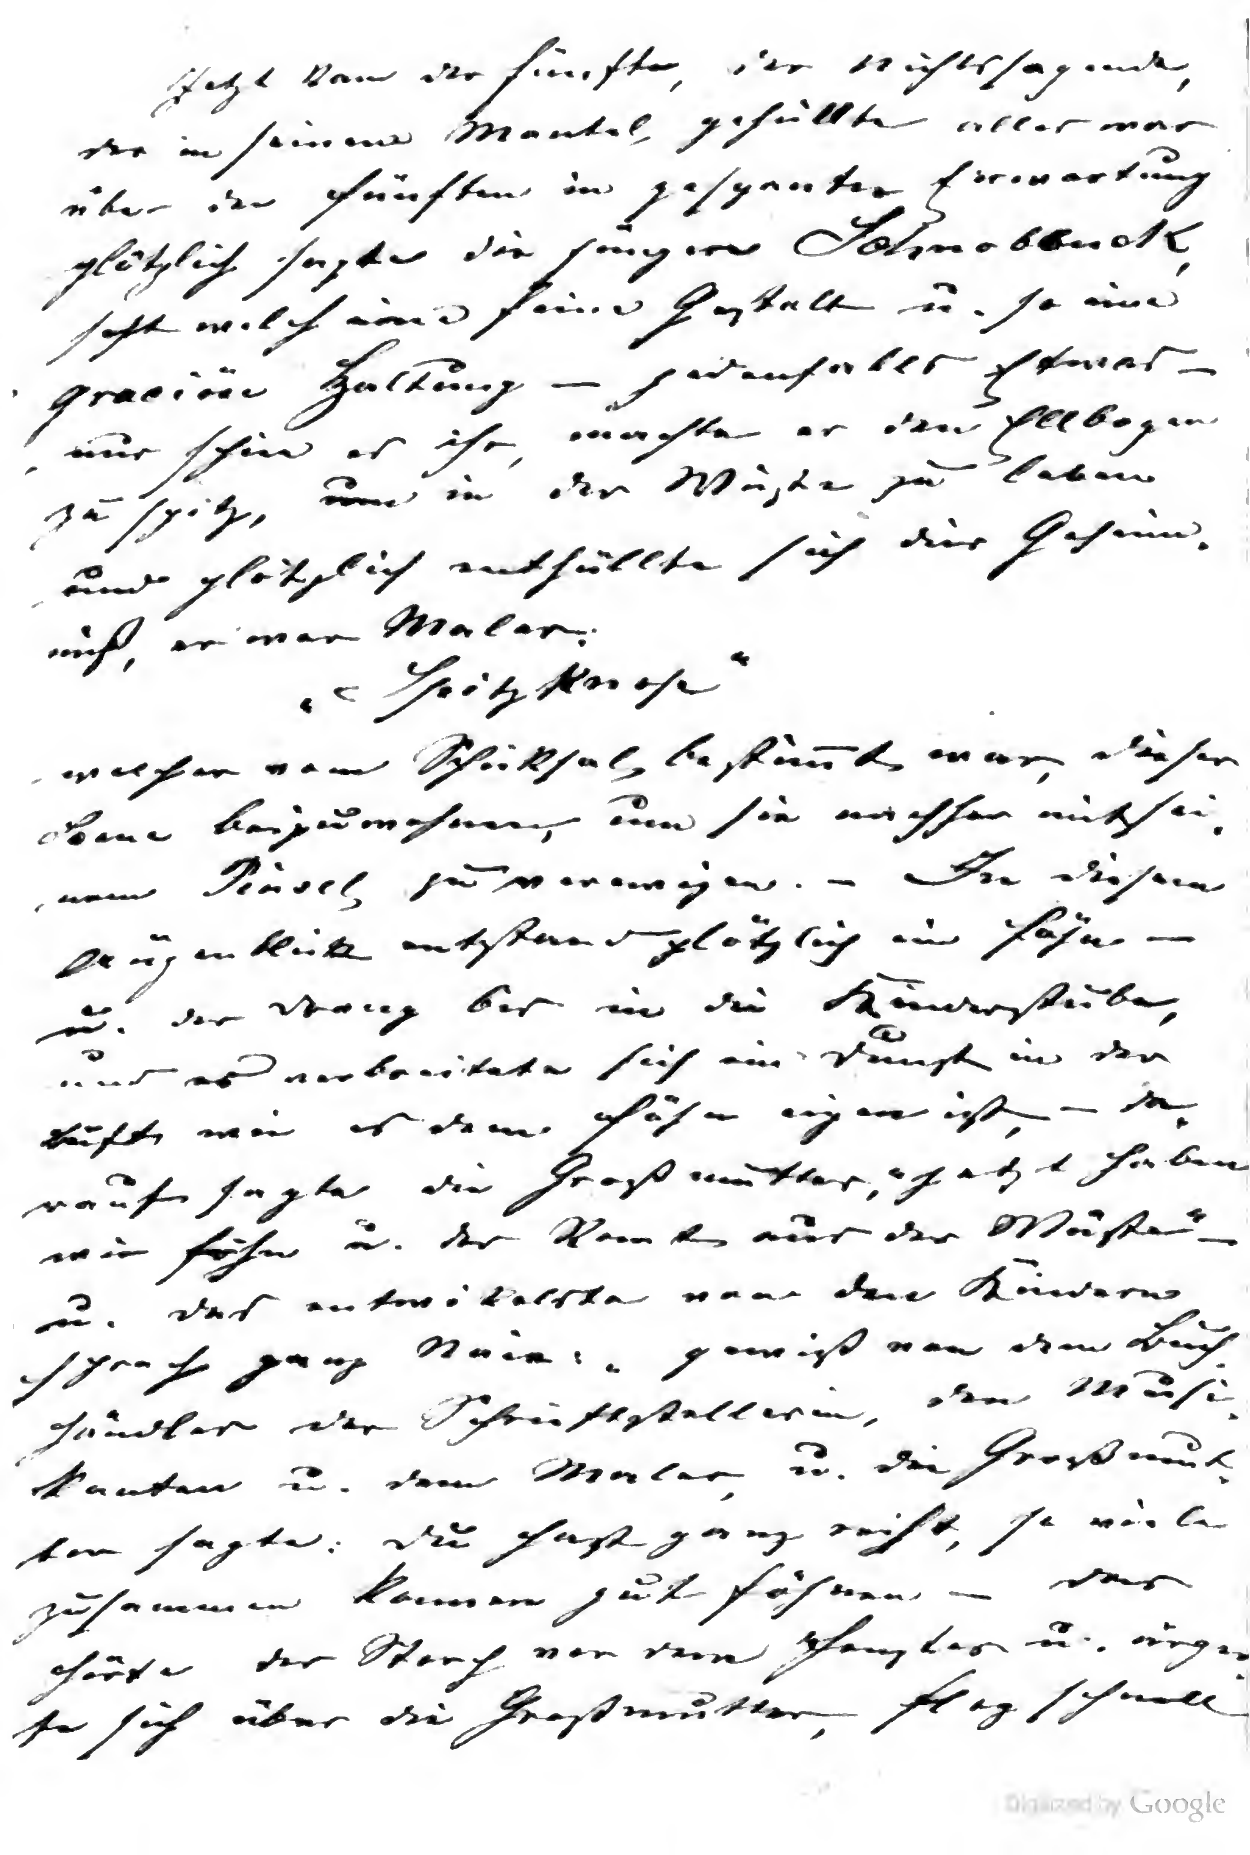 Jetzt kam der fünfte, der Nichtssagende,
der in seinem Mantel gehüllte alles war
über den fünften in gespanter Erwartung
plötzlich sagte die jüngere Schnabbuck,
seht welch eine feine Gestalt u. so eine
graciöse Haltung — jedenfalls Etwas —
nur schien es ihr, machte er den Ellbogen
zu spitz, um in der Wüste zu leben
und plötzlich enthüllte sich dies Geheim-
niß, er war Maler:
„Spitzknase"
welcher vom Schiksal bestimt war, dieser
Scene beizuwohnen, um sie nachher mit sei-
nem Pinsel zu verewigen. — In diesem
Augenblick entstand plötzlich ein Föhn —
u. der drang bis in die Kinderstube,
und es verbreitete sich ein Dunst in der
Luft wie es dem Föhn eigen ist, — da-
rauf sagte die Großmutter, „jetzt haben
wir Föhn u. der komt aus der Wüste" —
u. das entwikelste von den Kindern
sprach ganz Naiv: „gewiß von dem Buch-
händler der Schriftstellerin, den Musi-
kanten u. dem Maler, u. die Großmut-
ter sagte: du hast ganz recht, so viele
zusammen können gut föhnen — das
hörte der Storch vor dem Fenster u. ärger-
te sich über die Großmutter, flog schnell
Digitized by Google